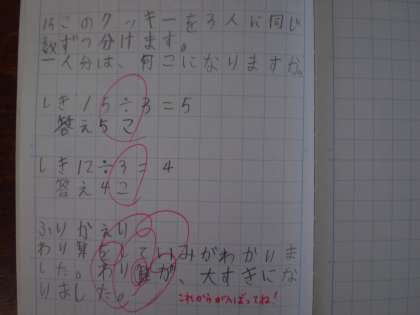 15このクッキーを3人に同じ
数ずつ分けます。
一人分は、何こになりますか。
しき 15÷3=5
答え5こ
しき12÷3=4
答え4こ
ふりかえり
わり算をしていみがわかりま
した。わり算が、大すきにな
りました。
これからがんばってね!